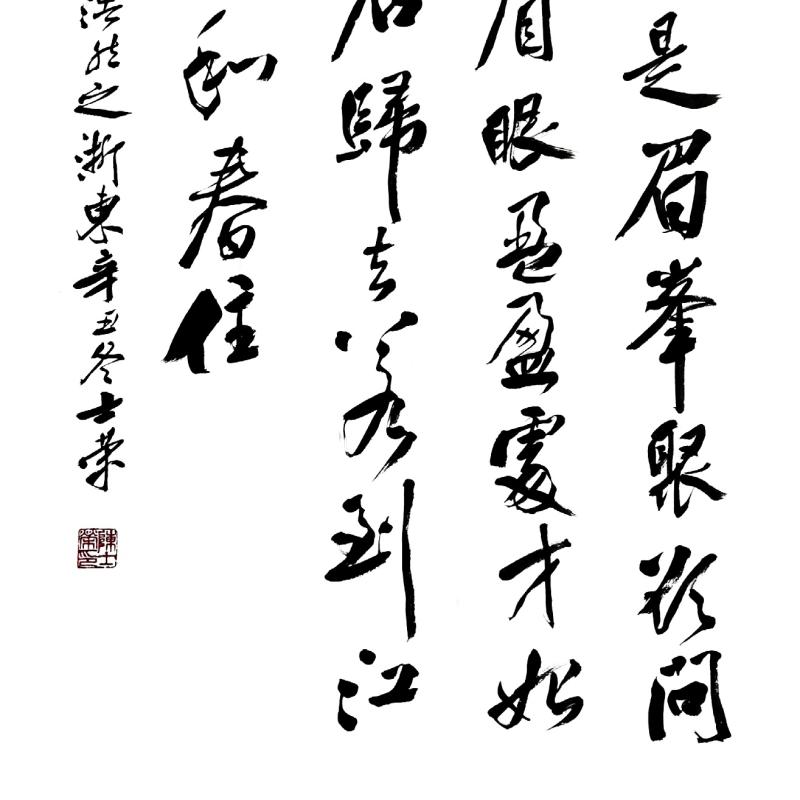 是眉峯聚欲問
眉眼盈盈處才始
君歸去若到江
和春住
浩然之浙東辛丑冬士榮
陳士榮印